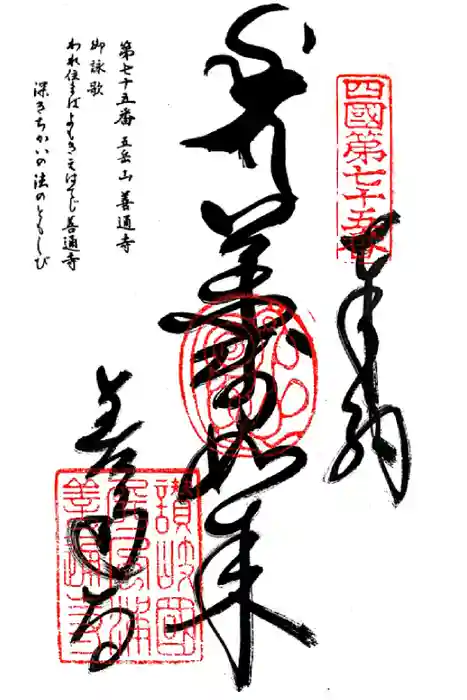 四國第七十五番
奉納
薬師如来
善通寺
讃岐國
屏風浦
善通寺
第七十五番 五岳山 善通寺
御詠歌
われ住まばよもきえはてじ善通寺
深きちかいの法のともしび